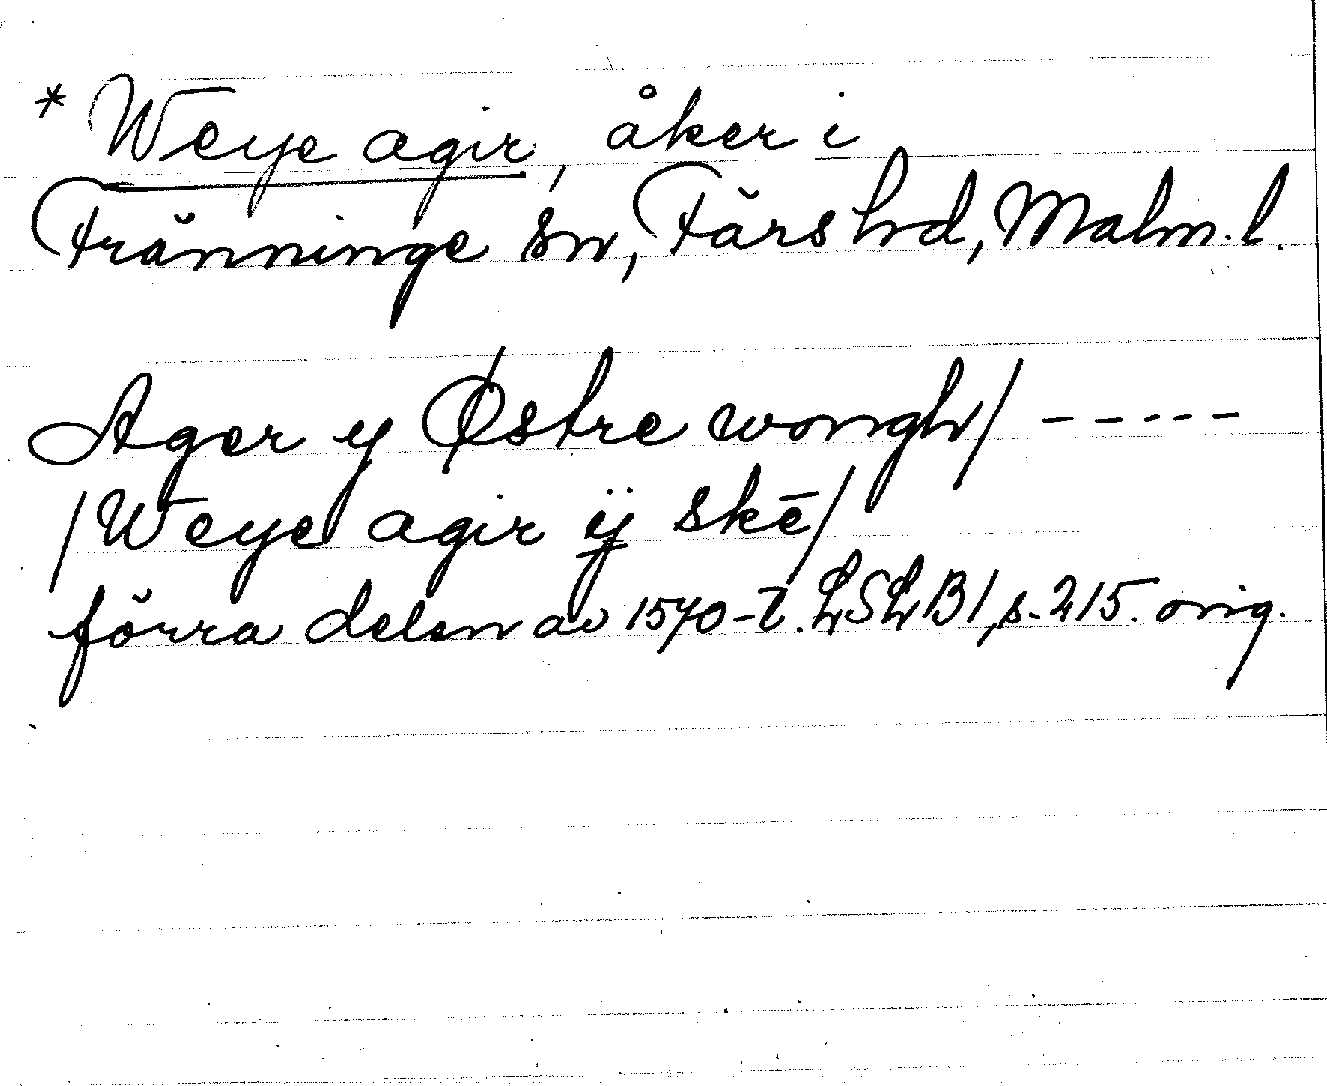 * Weye agir, åker i
Fränninge sn, Färs hd, Malm. l.
Ager y Østre wongh/ -----
/Weye agir ÿ skē/
förra delen av 1570-t. LSLB1, s. 215. orig.